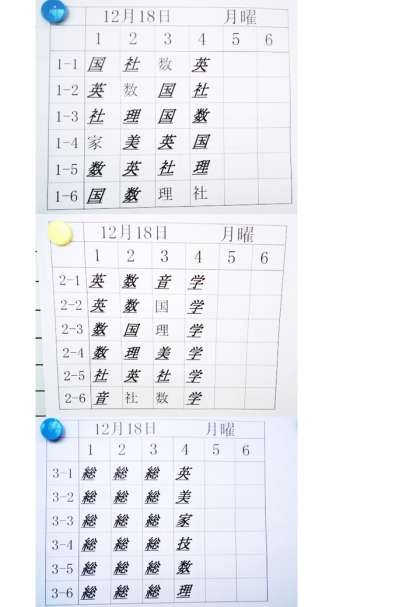 12月18日 月曜
1 2 3 4 5 6
1-1 国 社 数 英
1-2 英 数 国 社
1-3 社 理 国 数
1-4 家 美 英 国
1-5 数 英 社 理
1-6 国 数 理 社
12月18日 月曜
1 2 3 4 5 6
2-1 英 数 音 学
2-2 英 数 国 学
2-3 数 国 理 学
2-4 数 理 美 学
2-5 社 英 社 学
2-6 音 社 数 学
12月18日 月曜
1 2 3 4 5 6
3-1 総 総 総 英
3-2 総 総 総 美
3-3 総 総 総 家
3-4 総 総 総 技
3-5 総 総 総 数
3-6 総 総 総 理